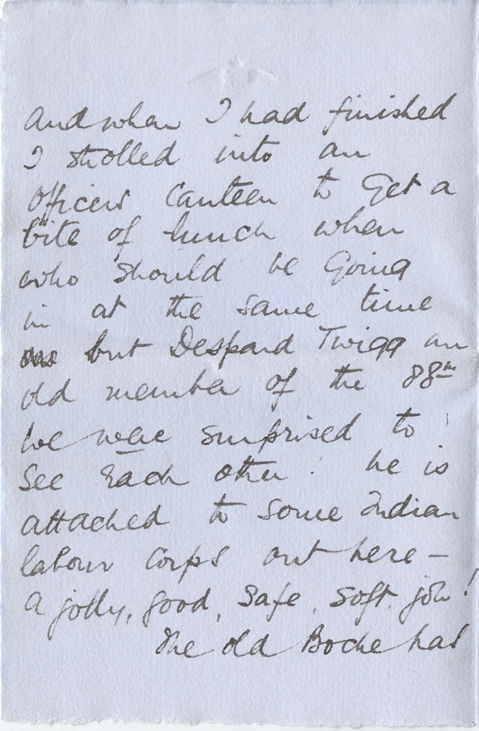 and when I had finished
I strolled into an
officers canteen to get a
bite of lunch when
who should be going
in at the same time
but Despard Twigg an
old member of the 88th
we were surprised to
see each other! he is
attached to some Indian
labour Corps out here –
a jolly, good, safe, soft job!
The old Boche has